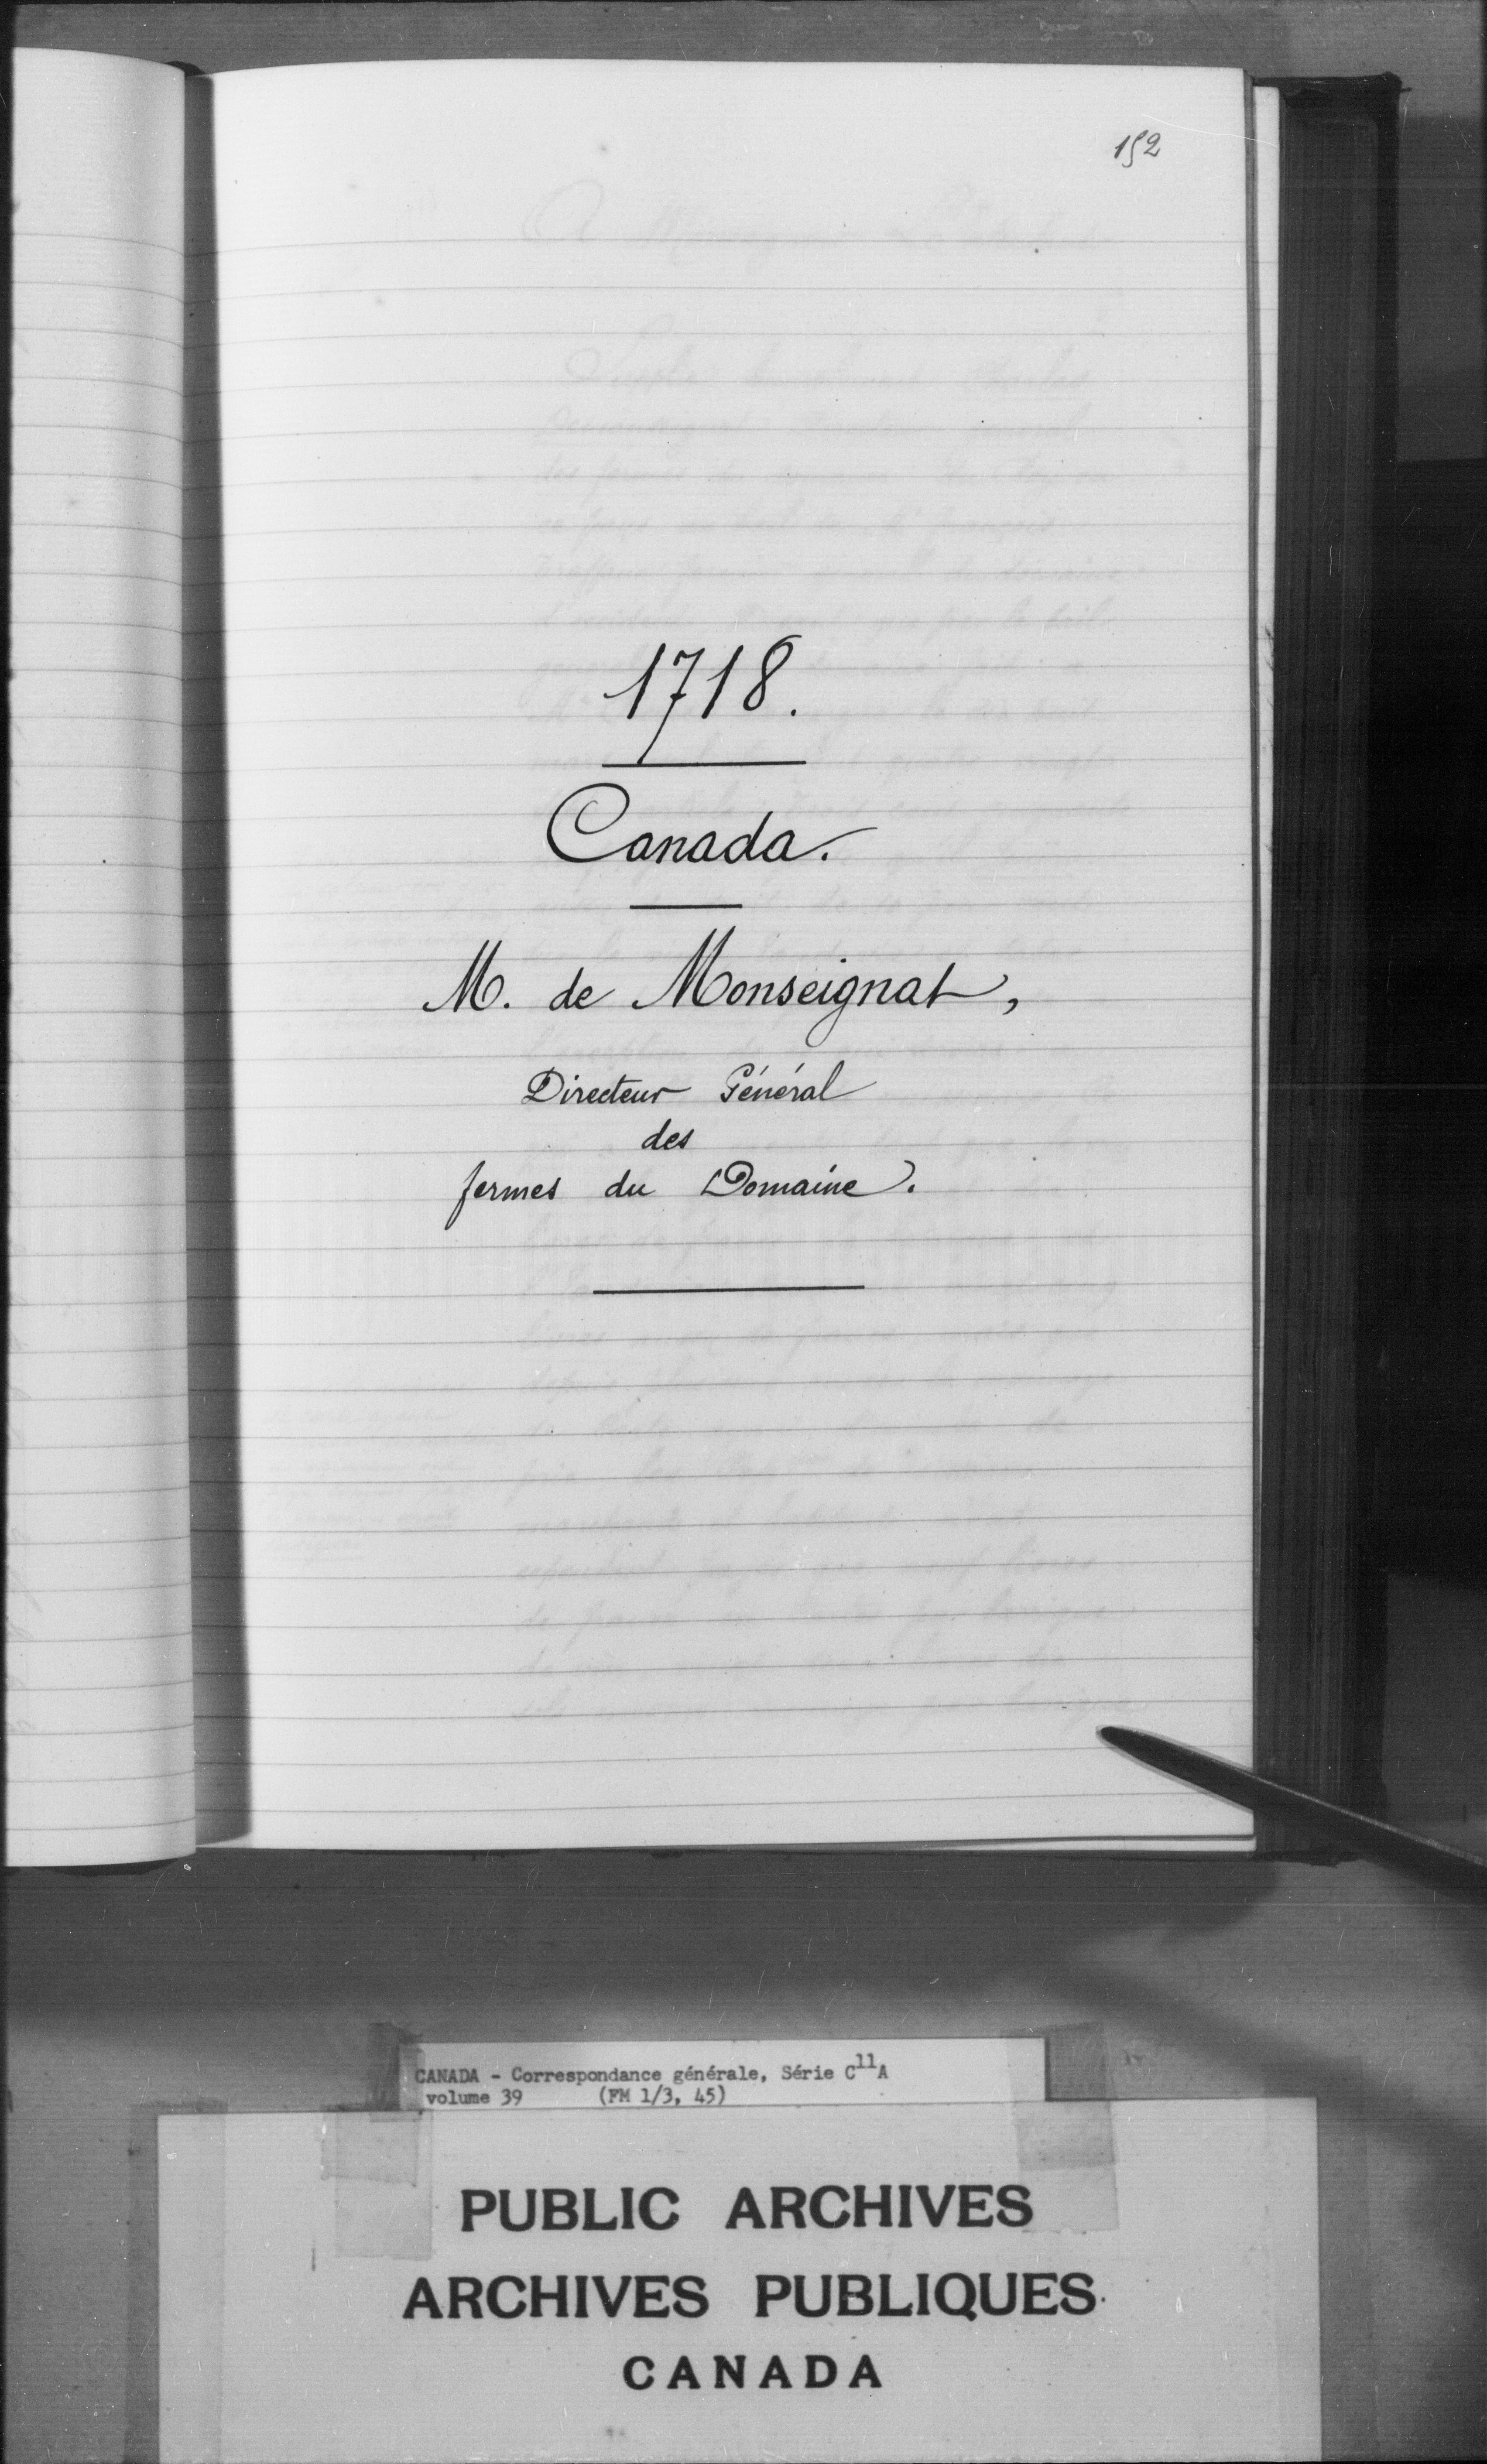 152
1718.
Canada.
M. de Monseignat,
Directeur Général
des
fermes du Domaine.
CANADA - Correspondance générale, Série C11A
volume 39 (FM 1/3, 45)
PUBLIC ARCHIVES
ARCHIVES PUBLIQUES
CANADA